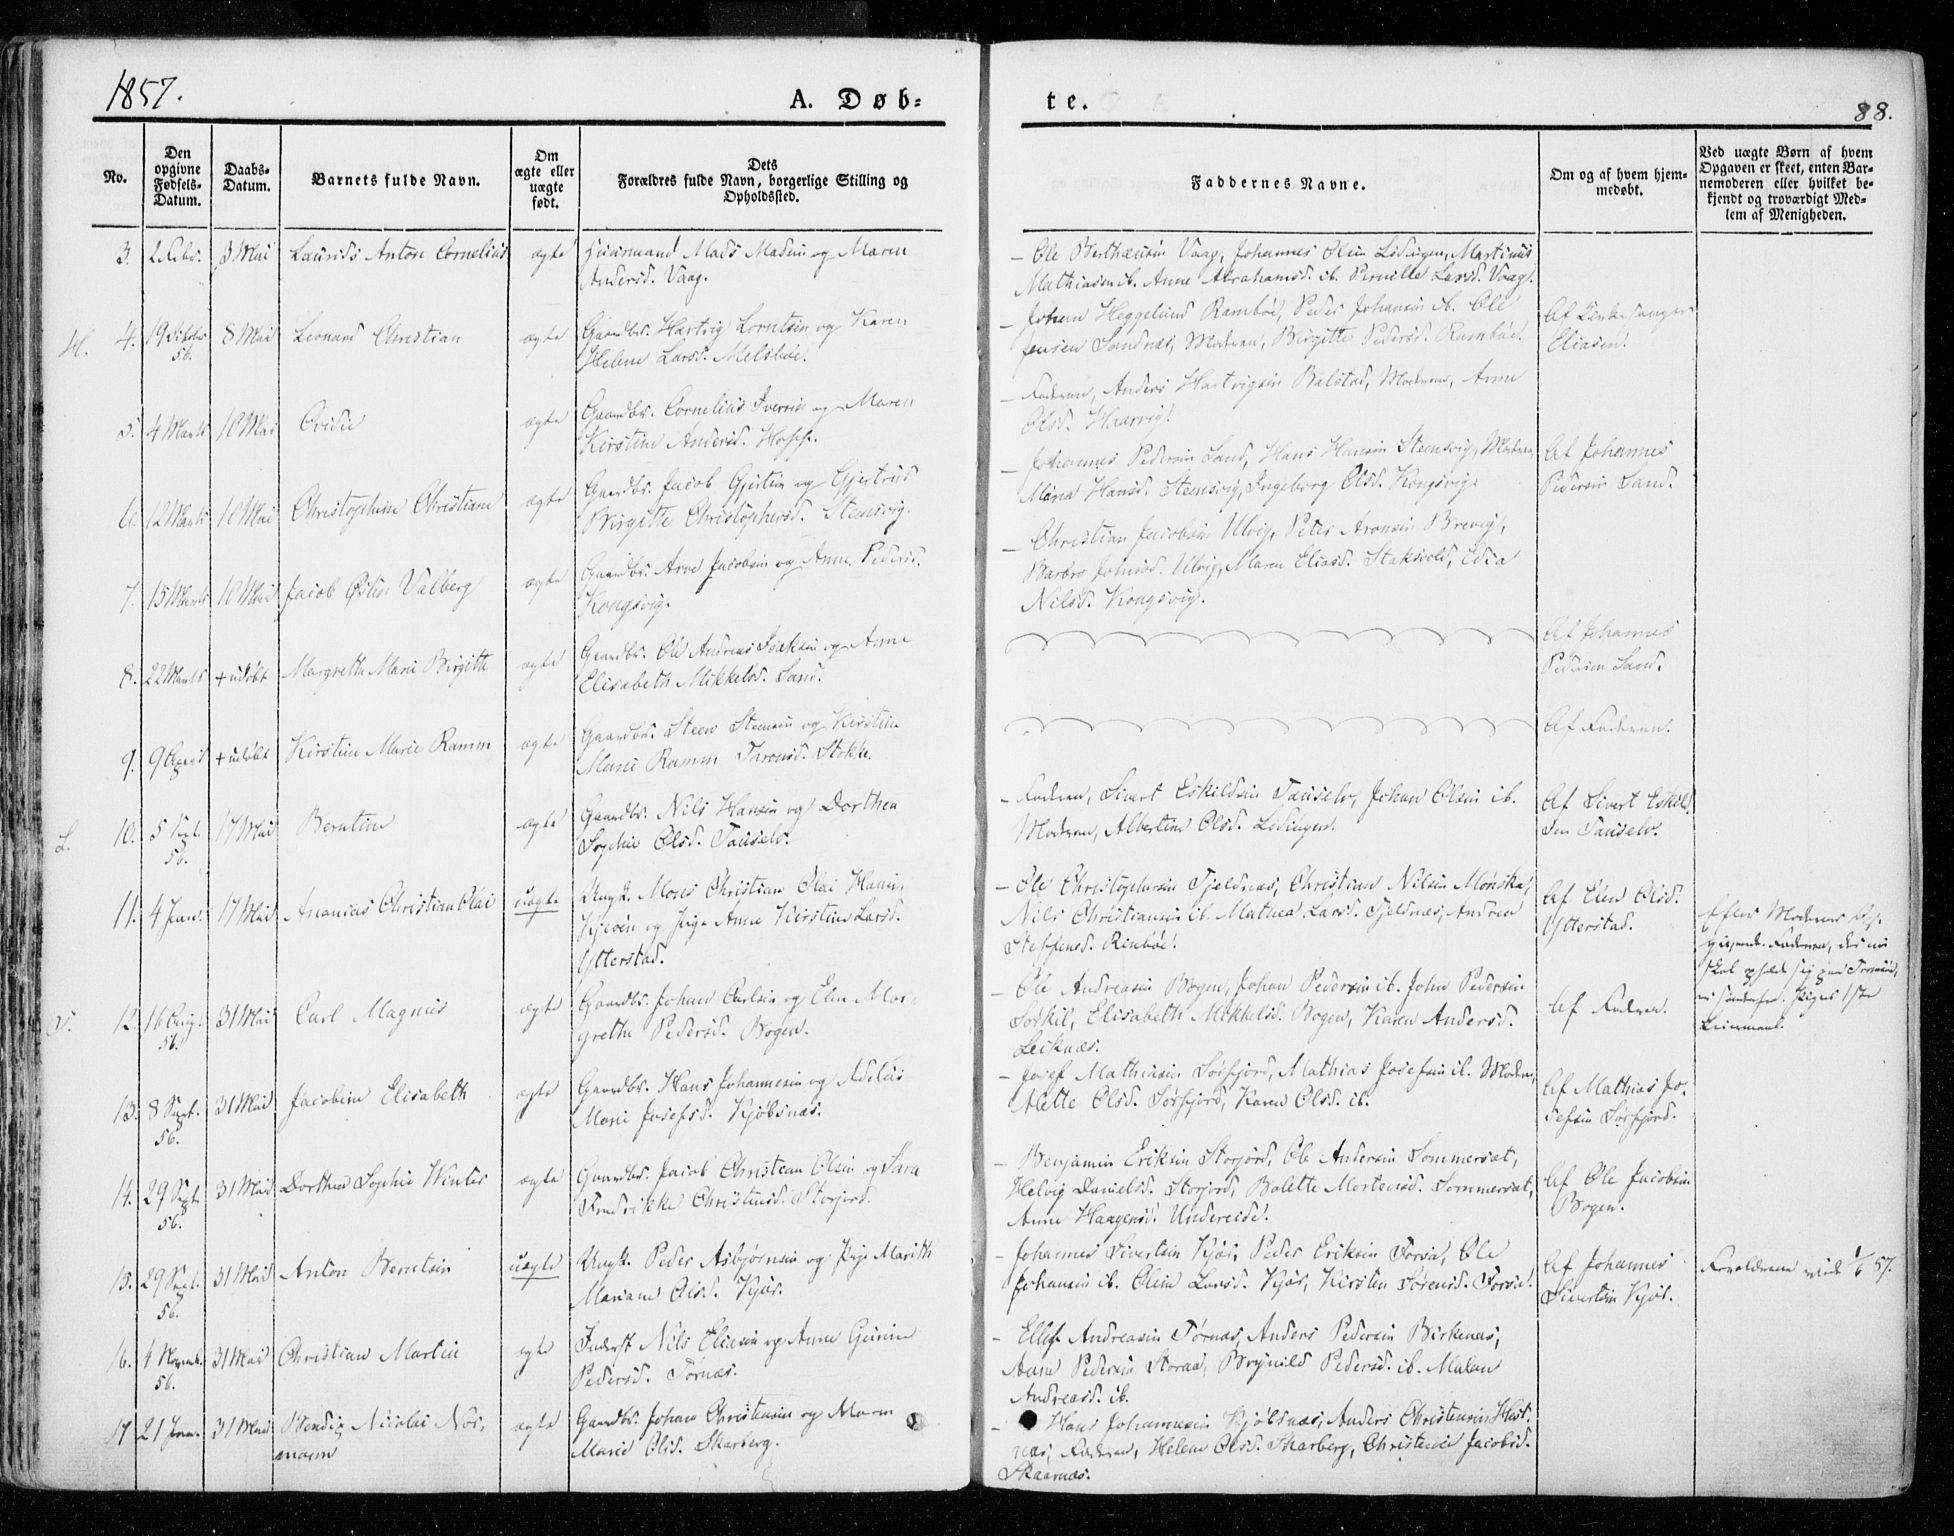 1857.
A. Døb-
te.
88.
No.
Den
opgivne
Fødsels-
Datum.
Daabs-
Datum.
Barnets fulde Navn.
Om
ægte eller
uægte
født.
Dets
Forældres fulde Navn, borgerlige Stilling og
Opholdssted.
Faddernes Navne.
Om og af hvem hjem-
medøbt.
Ved uægte Børn af hvem
Opgaven er skeet, enten Bar-
nemoderen eller hvilket be-
kjendt og troværdigt Med-
lem af Menigheden.
3. 2 Febr. 3 Mai Laurids Anton Cornelius ægte Huusmand Mads Madsen og Maren
Andersd. Vaag.
- Ole Berthæusen Vaag, Johannes Olsen Lødingen, Martinus
Mathiasen ib. Anne Abrahamsd. ib. Pernille Larsd. Vaag.
H. 4. 19 56. 8 Mai Leonard Christian ægte Gaardbr. Hartvig Lorntsen og Karen
Helene Larsd. Melsbøe.
- Johan Heggelund Rambøe, Peder Johansen ib. Ole
Jensen Sandnæs, Moderen, Birgitte Pedersd. Rambøe.
Af Kirkesanger
Eliasen.
5. 4 Marts 10 Mai Ovidie ægte Gaardbr. Cornelius Iversen og Maren
Kirstine Andersd.
- Faderen, Anders Hartvigsen Balstad, Moderen, Anne
Olsd. Haarvig.
6. 12 Marts 10 Mai Christophine Christiane ægte Gaardbr. Jacob Gjertsen og Gjertrud
Birgitte Christophersd. Steensvig.
- Johannes Pedersen Sand, Hans Hansen Steensvig, Moderen,
Maria Hansd. Steensvig, Ingeborg Olsd. Kongsvig.
Af Johannes
Pedersen Sand.
7. 15 Marts 10 Mai Jacob Østen Valberg ægte Gaardbr. Arve Jacobsen og Anne Pedersd.
Kongsvig.
- Christian Jacobsen Ulvig, Peter Aronsen Brevig,
Barbro Johnsd. Ulvig, Maren Eliasd. Staksvold, Edia
Nilsd. Kongsvig.
8. 22 Marts + udøbt Margrethe Marie Birgitte ægte Gaardbr. Ole Andreas Isaksen og Anne
Elisabeth Mikkelsd. Sand.
Af Johannes
Pedersen Sand.
9. 9 April + udøbt Kirstine Marie Ramm ægte Gaardbr. Steen Steensen og Kirstine
Marie Ramm Thronsd. Stokke.
Af Faderen.
L. 10. 5 Sept. 56. 17 Mai Berntine ægte Gaardbr. Nils Hansen og Dorthea
Sophie Olsd. Tauselv.
- Faderen, Sivert Eskildsen Tauselv, Johan Olsen ib.
Moderen, Albertine Olsd. Lødingen.
Af Sivert Eskild-
sen Tauselv.
11. 4 Jan. 17 Mai Ananias Christian Olai uægte Ungk. Mons Christian Olai Hansen
Kjeøen og Pige Anne Kirstine Larsd.
Ytterstad.
- Ole Christophersen Tjeldnæs, Christian Nilsen
Nils Christiansen ib. Mathea Larsd. Tjeldnæs, Andrea
Steffensd. Rinbøe.
Af Elen Olsd.
Ytterstad.
Efter Moderens Op-
givende. Faderen, der nu
skal opholde sig paa Tromsøe,
er Pigens 1ste
Leiermaal.
12. 16 Aug. 56. 31 Mai Carl Magnus ægte Gaardbr. Johan Carlsen og Elen Mar-
grethe Pedersd. Bogen.
- Ole Andreasen Bogen, Johan Pedersen ib. John Pedersen
Sørkil, Elisabeth Mikkelsd. Bogen, Karen Andersd.
Leiknæs.
Af Faderen.
13. 8 Sept. 56. 31 Mai Jacobine Elisabeth ægte Gaardbr. Hans Johannesen og Adelus
Marie Josefsd. Kjøbsnæs.
- Josef Mathiasen Sørfjord, Mathias Josefsen ib. Moderen,
Mette Olsd. Sørfjord, Karen Olsd. ib.
Af Mathias Jo-
sefsen Sørfjord.
14. 29 Sept. 56. 31 Mai Dorthea Sophie Winter ægte Gaardbr. Jacob Christian Olsen og Sara
Fredrikke Christensd. Storjord.
- Benjamin Eriksen Storjord, Ole Andersen Sommersæt,
Helvig Danielsd. Storjord, Bolette Mortensd. Sommersæt,
Anne Haagensd. Undereidet.
Af Ole Jacobsen
Bogen.
15. 29 Sept. 56. 31 Mai Anton Berntsen uægte Ungk. Peder Asbjørnsen og Pige Marith
Mariane Olsd. Kjær.
- Johannes Sivertsen Kjær, Peder Eriksen Forsaa, Ole
Johansen ib. Oline Larsd. Kjær, Kirsten Sørensd. Forsaa.
Af Johannes
Sivertsen Kjær.
Forældrene viede 1/6 57.
16. 4 Novemb. 56. 31 Mai Christian Martin ægte Inderst Nils Eliasen og Anne
Pedersd. Tørnæs.
- Ellef Andreasen Tørnæs, Anders Pedersen Birkenæs,
Arne Pedersen Storaa, Brynild Pedersd. ib. Malene
Andreasd. ib.
17 21 Jan. 31 Mai Bendix Nicolai Nor-
mann ægte Gaardbr. Johan Christensen og Maren
Marie Olsd. Skarberg.
- Hans Johannesen Kjøbsnæs, Anders Christensen Hest-
næs, Faderen, Helene Olsd. Skarberg, Christence Jacobsd.
Skaarnæs.